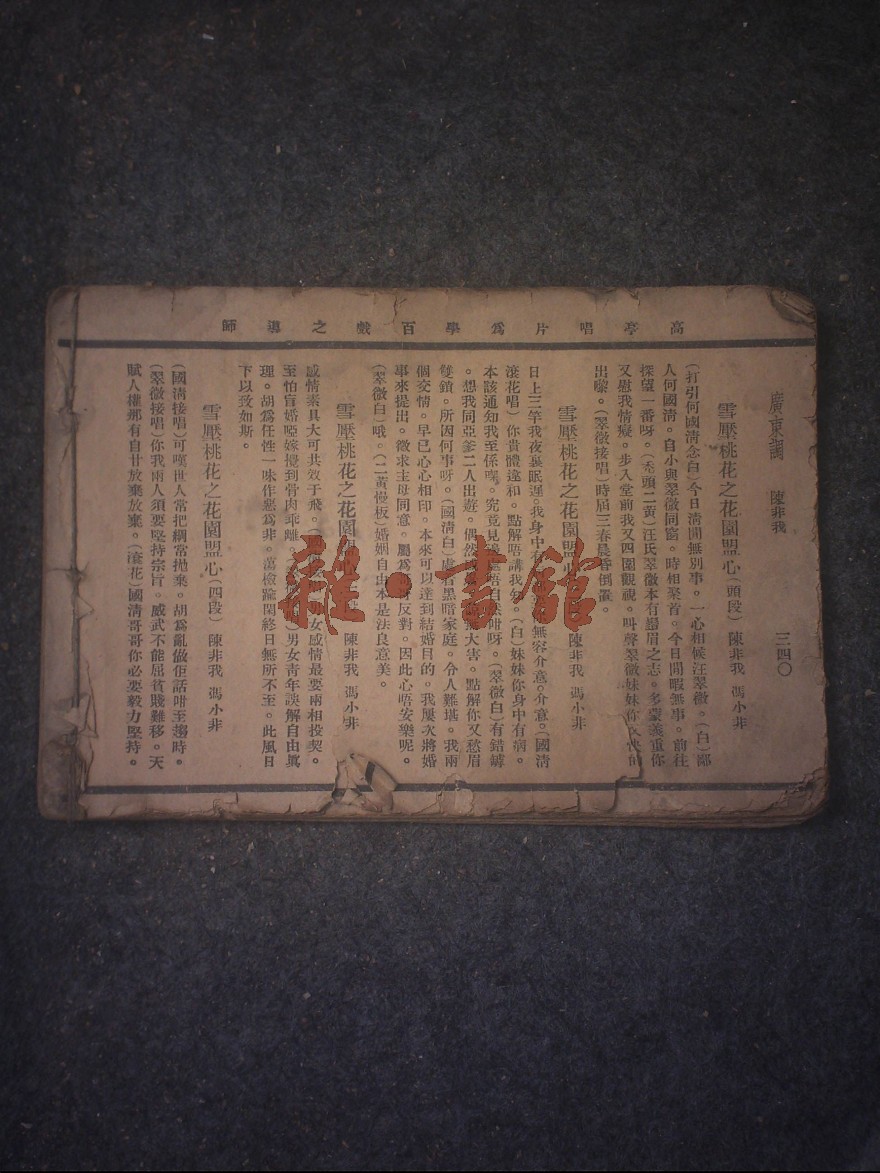 高亭唱片爲學百戲之導師
廣東調 陳非我 三四〇
雪壓桃花之花園盟心(頭段) 陳非我 馮小非
(打引何國清念白)今日清閒無別事。一心相候汪翠薇。(白)鄙
人何國清。自小與翠薇同窗。時相聚首。今日閒暇無事。前往
探望一番呀。(禿頭二黃)汪氏翠薇本有鬚眉之志。多蒙義重你
又慰我情癡。步入堂前我又四圍觀視。叫聲翠薇妹妹你
出嚟。(翠薇接唱)時屆三春晨昏倒置。
雪壓桃花之花園 陳非我 馮小非
日上三竿我夜裏眠遲。我身中有 你無容介意。介意。(國清
滾花唱)你貴體違和。點解唔講我知。(白)妹妹你身中有病。
本該通知我至係嘅。究竟見 唔自然咁呀。(翠薇白)有錯講
。想我同亞爹二人出遊。偶然 無大害。點解你又愁眉
雙鎖。所因何事呀。(國清白)處 黑暗家庭。令人難堪。我兩
個交情。早已心心相印。本來可以達到結婚目的。我屢次將婚
事來提出。徵求主母同意。屬 反對。因此心唔安樂呢。
(翠薇白)哦。(二黃慢板)婚姻自由本是法良意美。
雪壓桃花之花園盟心 陳非我 馮小非
感情素具大可共效于飛。 男女感情最要兩相投契。
至怕盲婚啞嫁攪到骨肉乖離。 男女青年誤解自由眞
理。胡爲任性一味作惡爲非。蕩檢踰閑終日無所不至。此風日
下以致如斯。
雪壓桃花之花園盟心(四段) 陳非我 馮小非
(國清接唱)可嘆世人常把綱常拋棄。胡爲亂做佢話咁至趨時。
(翠薇接唱)你我兩人須要堅持宗旨。威武不能屈貧賤難移。天
賦人權那有自甘放棄放棄。(滾花)國清哥哥你必要毅力堅持。
雜·書館